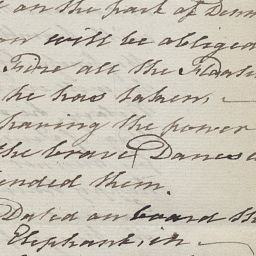 on the part of Denm
will be obliged
Fire all the Floatin
he has taken,
having the power
the brave Danes
ended them.
Dated on board the
Elephant in